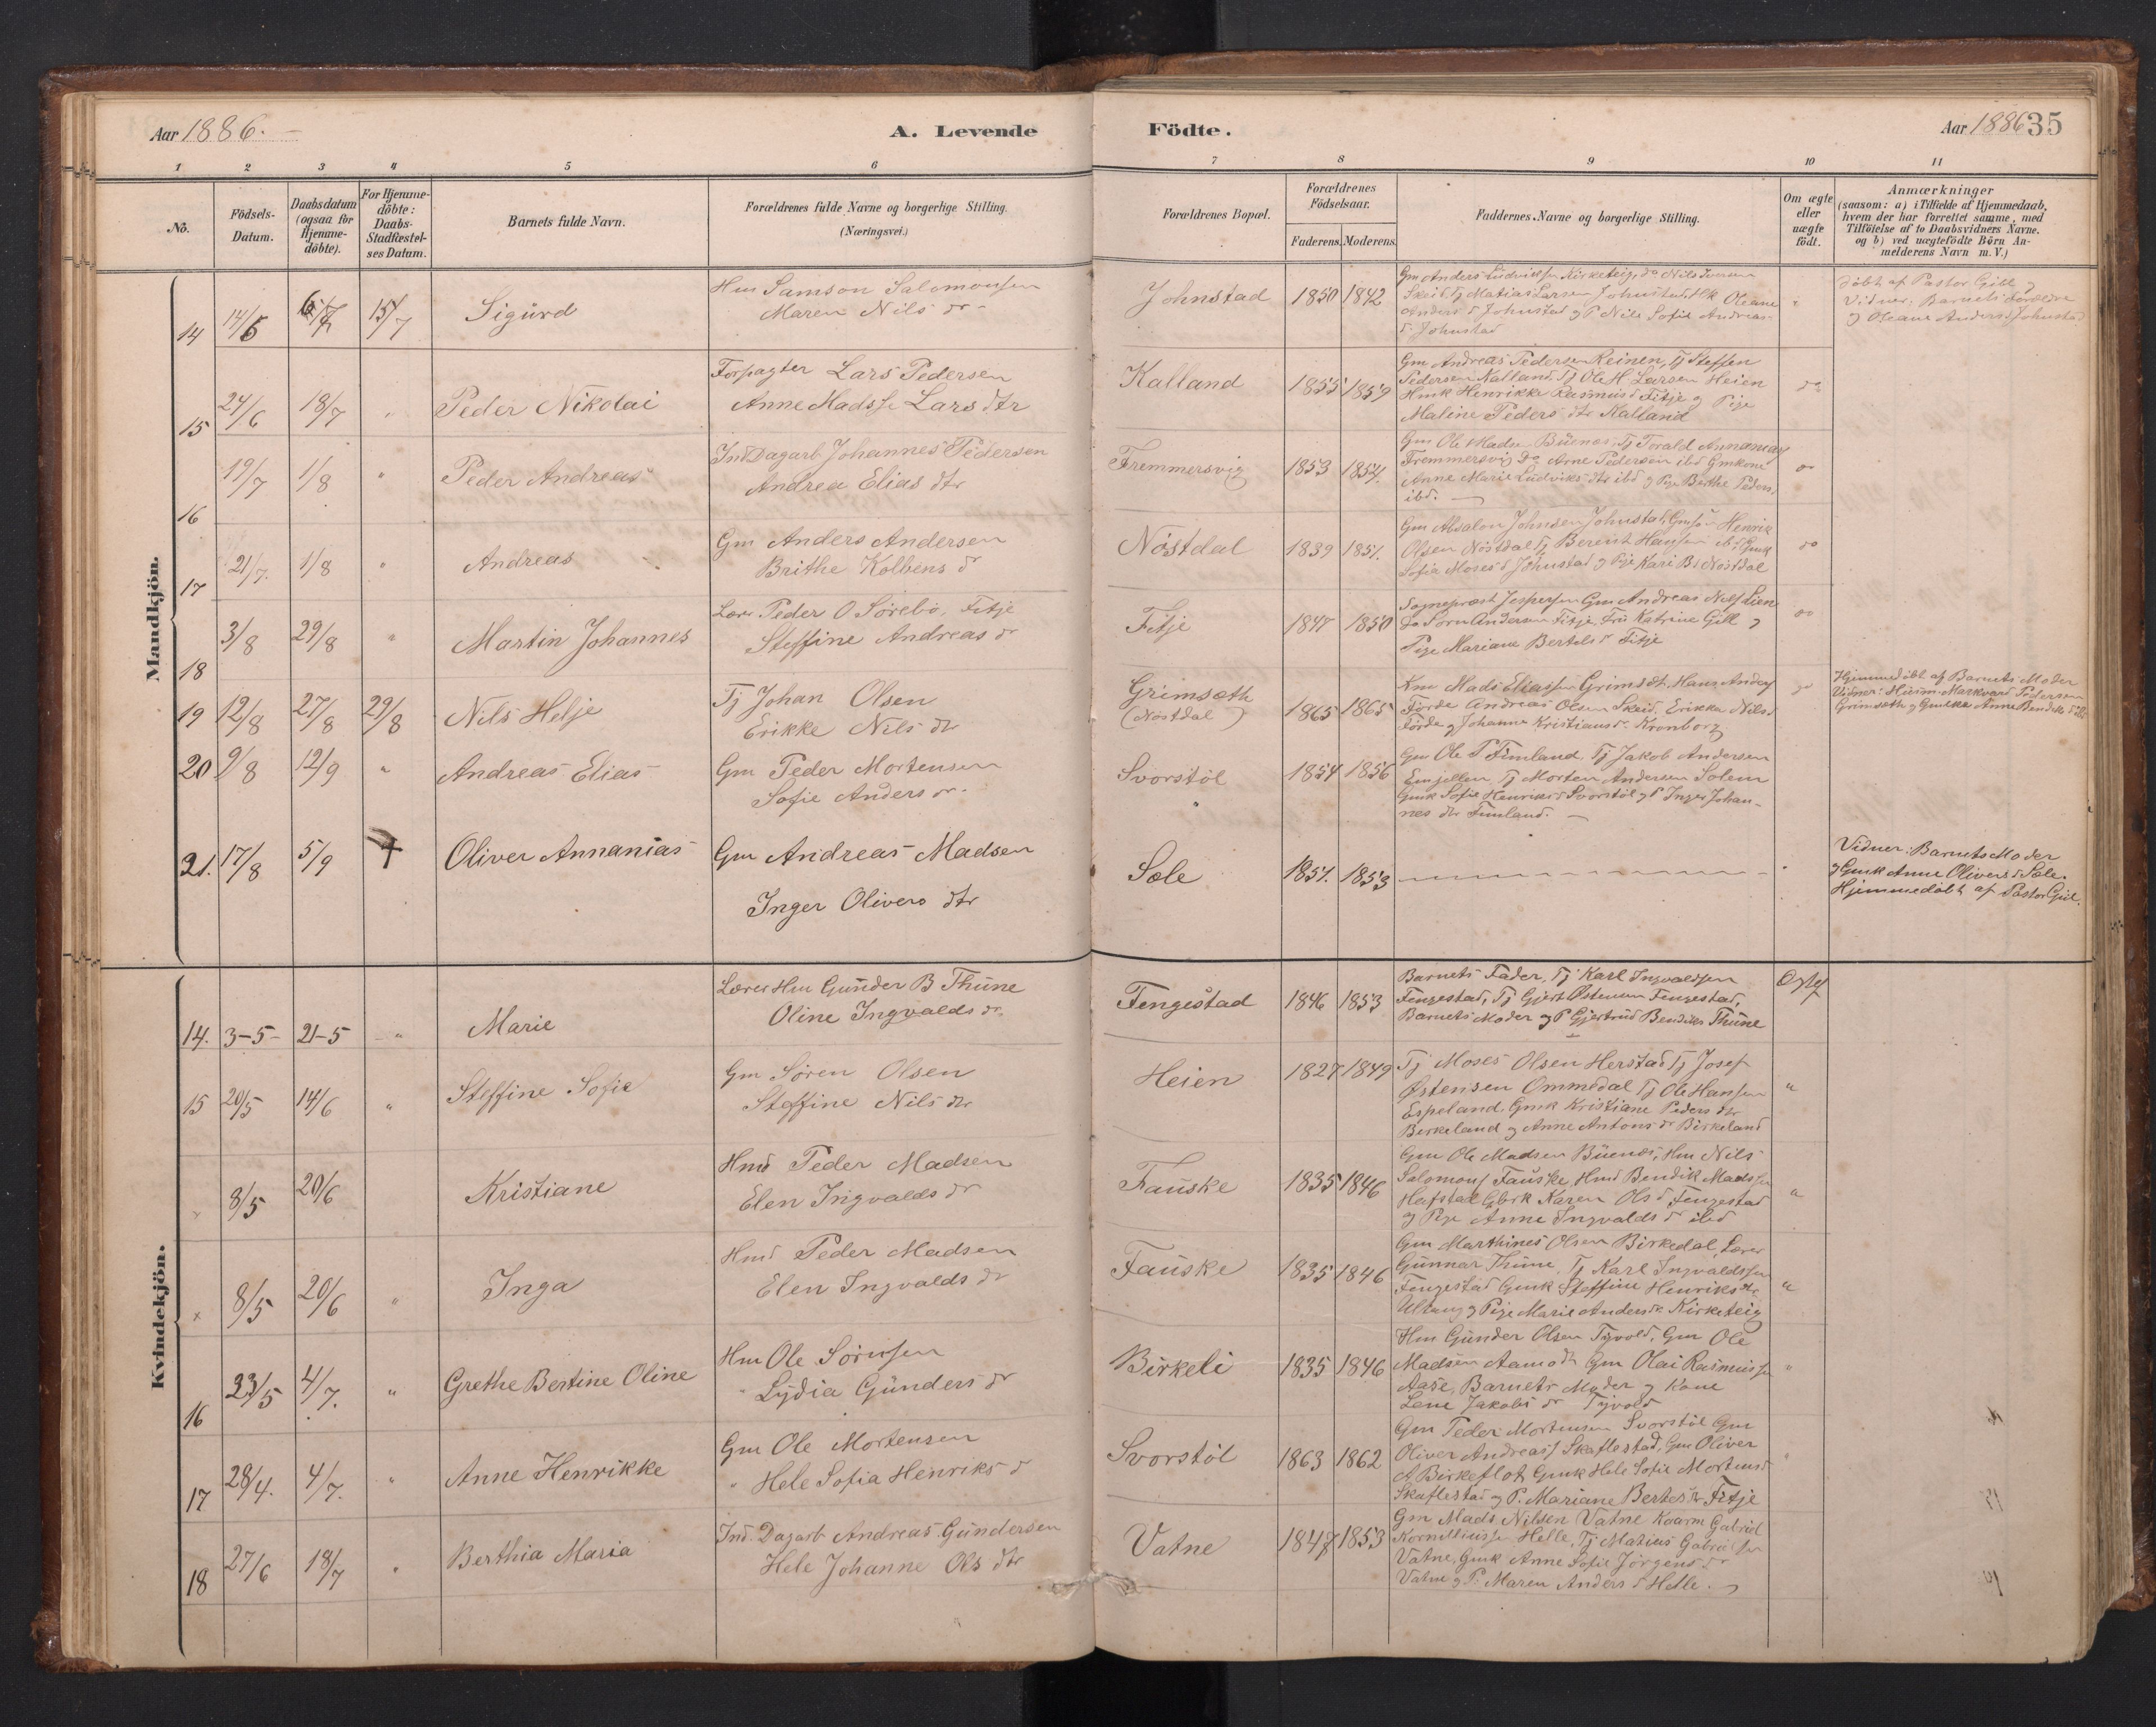 Aar 1886. A. Levende
Födte. Aar 1886 35
1 2 3 4 5 6 7 8 9 10 11
No.
Födsels-
Datum.
Daabsdatum
(ogsaa for
Hjemme-
döbte).
For Hjemme-
döbte:
Daabs-
Stadfæstel-
ses Datum.
Barnets fulde Navn.
Forældrenes fulde Navne og borgerlige Stilling.
(Næringsvei.)
Forældrenes Bopæl.
Forældrenes
Födselsaar.
Faderens. Moderens.
Faddernes Navne og borgerlige Stilling.
Om ægte
eller
uægte
födt.
Anmærkninger
(saasom: a) i Tilfælde af Hjemmedaab,
hvem der har forrettet samme, med
Tilföielse af to Daabsvidners Navne.
og b) ved uægtefödte Börn An-
melderens Navn m. V.)
Mandkjön.
14 14/6 15/7 Sigürd
Hm Samson Salomonsen
Maren Nils dr
Johnstad 1850 1842
Gm Anders Ludviksen Kirketeig, do Nils Iversen
Skeid Tj Matias Larsen Johnstad, Hk Oleane
Anders d Johnstad og P Nille Sofie Andreas-
d. Johnstad
döbt af Pastor Gill
Vidner: Barnets Forældre
og Oleane Anders d Johnstad
15 24/6 18/7 " Peder Nikolai
Forpagter Lars Pedersen
Anne Madsse Lars dtr
Kalland 1855 1859
Gm Andreas Pedersen Reinen, Tj Steffen
Pedersen Kalland. Tj Ole H Larsen Heien
Hmk Henrikke Rasmus d Fitje og Pige
Maline Peders dtr Kalland
do
16 19/7 1/8 " Peder Andreas
Ind Dagarb Johannes Pedersen
Andrea Elias dtr
Fremmersvig 1853 1854.
Gm Ole Madsen Büenes, Tj Torald Annanias
Fremmersvig Do Arne Pedersen ibd Gmkone
Anne Marie Ludviks dtr ibd og Pige Berthe Peders
ibd.
do
17 21/7. 1/8 " Andreas
Gm Anders Andersen
Brithe Kolbens dr
Nöstdal 1839 1851.
Gm Absalon Johnsen Johnstad, Gmsön Henrik
Olsen Nöstdal Tj Bereist Hansen ibd, Gmk
Sofia Moses d Johnstad og Pige Kari B d Nöstdal
do
18 3/8 29/8 " Martin Johannes
Lærer Peder O Sörebö, Fitje
Steffine Andreas dr
Fitje 1847 1850
Sogneprest Jespersen Gm Andreas Nilss Lien
do Sorn Andersen Fitje, Frü Katrine Gill og
Pige Mariane Bertels d Fitje
do
19 12/8 27/8 29/8 Nils Helje
Tj Johan Olsen
Erikke Nils dtr
Grimsæth
(Nöstdal) 1865 1865
Km Mads Eliassen Grimsæt, Hans Anders
Förde Andreas Olsen Skeid, Erikka Nilsd
Förde og Johanne Kristians d. Kronborg
Hjemmedöbt af Barnets Moder
Vidner: Huusm. Markvard Pedersen
Grimsæth og Gmkke Anne Bendiks d ibd
20 9/8 12/9 " Andreas Elias
Gm Peder Mortensen
Sofie Anders dr
Svorstöl 1854 1856
Gm Ole P Fimland, Tj Jakob Andersen
Emjellen, Tj Morten Andersen Solem
Gmk Sofie Henriks d Svorstöl og P Inger Johan-
nes dtr Fimland.
21. 17/8 5/9 Oliver Annanias
Gm Andreas Madsen
Inger Olivers dtr
Sæle 1851. 1853
Vidner: Barnets Moder
og Gmk Anne Olivers d Sæle.
Hjemmedöbt af Pastor Gill.
Kvindekjön.
14. 3-5- 21-5 " Marie
Lærer Hm Günder B Thüne
Oline Ingvalds dr.
Fengestad 1846 1853
Barnets Fader, Tj Karl Ingvaldsen
Fengestad, Tj Gjert Östensen Fengestad,
Barnets Moder og P Gjertrud Bendiks Thüne
15 20/5 14/6 " Steffine Sofie
Gm Sören Olsen
Steffine Nils dtr
Heien 1827 1849
Tj Moses Olsen Herstad Tj Josef
Östensen Ommedal Tj Ole Hansen
Espeland, Gmk Kristiane Peders dtr
Birkeland og Anne Antons dr Birkeland
"
8/5 20/6 Kristiane
Hmd Peder Madsen
Elen Ingvalds dr
Fauske 1835 1846
Gm Ole Madsen Büenes, Hm Nils
Salomons Fauske Hmd Bendik Madssen
Hafstad Gbrk Karen Ols d. Fengestad
og Pige Anne Ingvalds dr ibd
"
x 8/5 20/6 " Inga
Hmd Peder Madsen
Elen Ingvalds dr
Fauske 1835 1846
Gm Marthines Olsen Birkedal, Lærer
Gunnar Thüne, Tj Karl Ingvaldssen
Fengestad Gmk Steffine Henriks dtr.
Ultang og Pige Marie Anders dr Kirketeig
"
16 23/5 4/7. " Grethe Bertine Oline
Hm Ole Sörensen
" Lydia Günders dr
Birkeli 1835 1846
Hm Günder Olsen Tyvold, Gm Ole
Madsen Aamodt Gm Olai Rasmussen
Aase, Barnets Moder og Kone
Lene Jakobs dr Tyvold
"
17 28/4. 4/7. " Anne Henrikke
Gm Ole Mortensen
" Hele Sofia Henriks d
Svorstöl 1863 1862
Gm Peder Mortensen Svorstöl Gm
Oliver Andreass Skaflestad, Gm Oliver
A Birkeflot, Gmk Hele Sofie Mortensd
Skaflestad og P. Mariane Bertels dr Fitje
18 27/6 18/7 " Berthia Maria
Ind. Dagarb Andreas Gundersen
Hele Johanne Ols dtr
Vatne 1847 1853
Gm Mads Nilsen Vatne Koarm Gabriel
Korneliussen Helle, Tj Matius Gabrielsen
Vatne, Gmk Anne Sofie Jörgens dr
Vatne og P. Maren Anders d Helle.